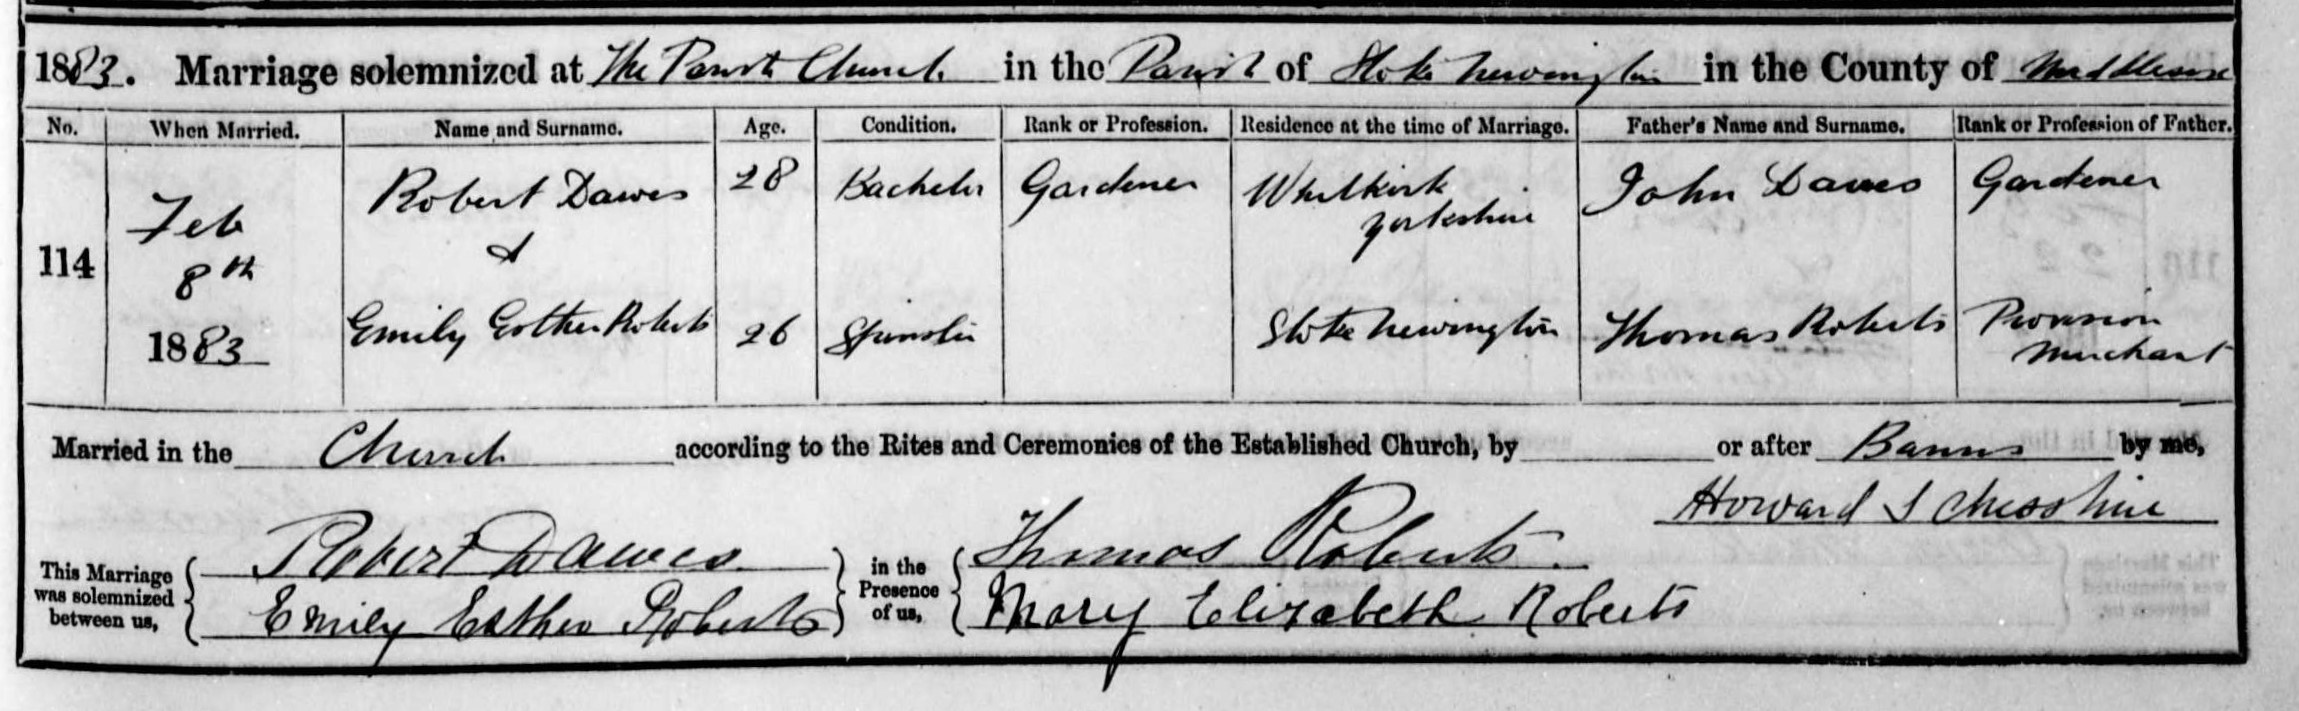 1883. Marriage solemnized at The Parish Church in the Parish of Stoke Newington in the County of Middlesex
No. When Married. Name and Surname. Age. Condition. Rank or Profession. Residence at the time of Marriage. Father's Name and Surname. Rank or Profession of Father.
114 Feb 8th 1883 Robert Dawes 28 Bachelor Gardener Whitkirk Yorkshire John Dawes Gardener
&
Emily Esther Roberts 26 Spinster Stoke Newington Thomas Roberts Provision Merchant
Married in the Church according to the Rites and Ceremonies of the Established Church, by or after Banns by me,
Howard J Chesshire
This Marriage was solemnized between us, Robert Dawes in the Presence of us, Thomas Roberts
Emily Esther Roberts Mary Elizabeth Roberts